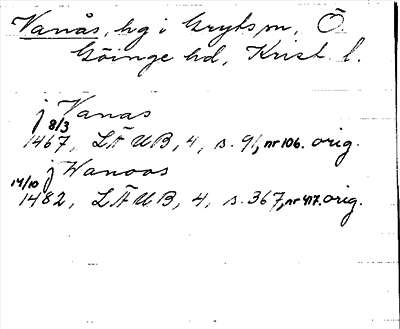 Vanås, hg i Gryts sn, Ö.
Göinge hd, Krist. l.
j Vanas
8/3
1467, LÄUB, 4, s. 91, nr 106. orig.
j Wanoos
14/10
1482, LÄUB, 4, s. 367, nr 417. orig.